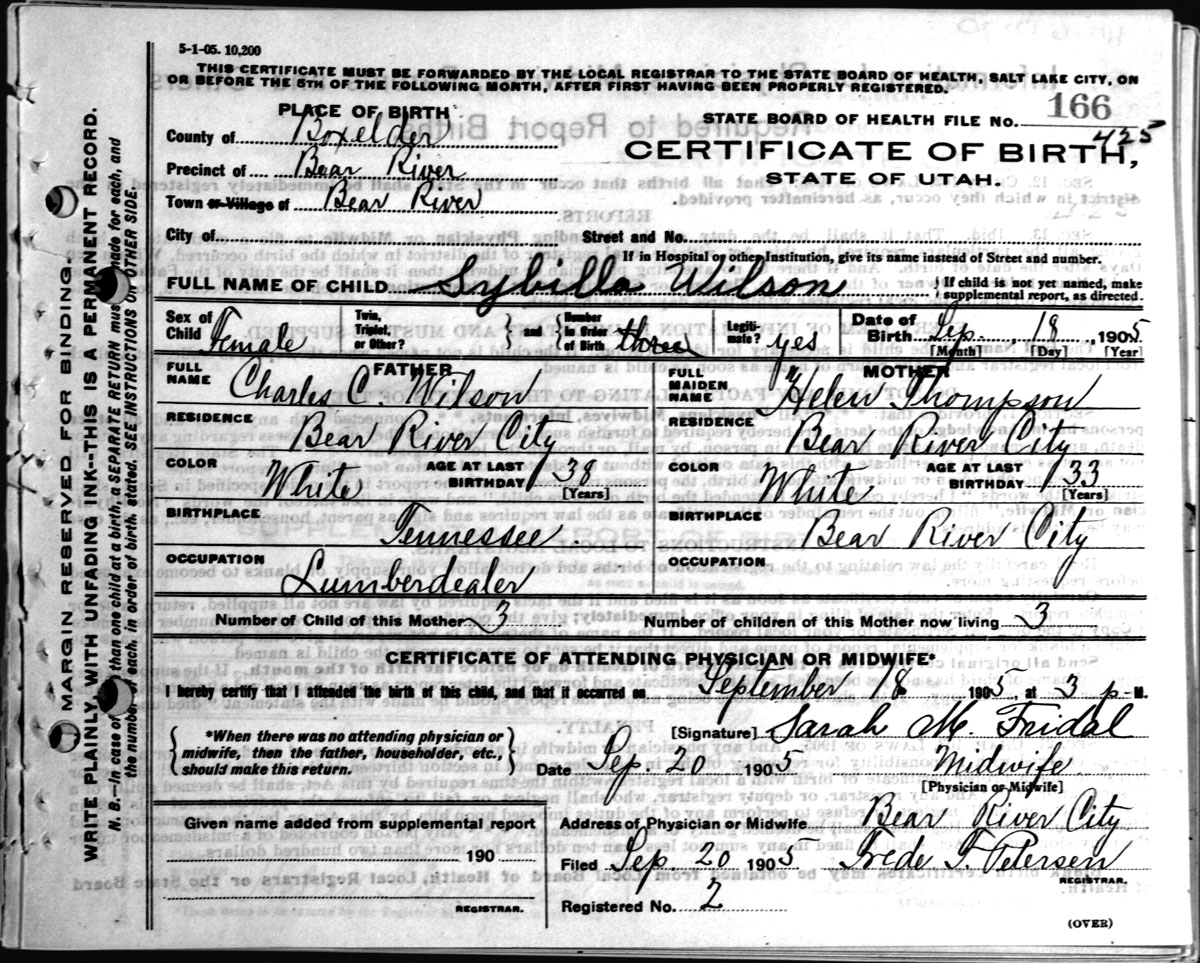 5-1-05. 10,200
THIS CERTIFICATE MUST BE FORWARDED BY THE LOCAL REGISTRAR TO THE STATE BOARD OF HEALTH, SALT LAKE CITY, ON
OR BEFORE THE 5TH OF THE FOLLOWING MONTH, AFTER FIRST HAVING BEEN PROPERLY REGISTERED.
PLACE OF BIRTH
STATE BOARD OF HEALTH FILE NO. 166
425
County of Boxelder
CERTIFICATE OF BIRTH,
STATE OF UTAH.
Precinct of Bear River
Town or Village of Bear River
City of Street and No.
If in Hospital or other Institution, give its name instead of Street and number.
FULL NAME OF CHILD Sybilla Wilson } If child is not yet named, make supplemental report, as directed.
Sex of Child Female Twin, Triplet, or Other? } and { Number in Order of Birth three Legitimate? yes Date of Birth Sep. 18, 1905
[Month] [Day] [Year]
FATHER MOTHER
FULL NAME Charles C Wilson FULL MAIDEN NAME Helen Thompson
RESIDENCE Bear River City RESIDENCE Bear River City
COLOR White AGE AT LAST BIRTHDAY 38 [Years] COLOR White AGE AT LAST BIRTHDAY 33 [Years]
BIRTHPLACE Tennessee BIRTHPLACE Bear River City
OCCUPATION Lumberdealer OCCUPATION
Number of Child of this Mother 3 Number of children of this Mother now living 3
CERTIFICATE OF ATTENDING PHYSICIAN OR MIDWIFE*
I hereby certify that I attended the birth of this child, and that it occurred on September 18 1905, at 3 p-M.
{ *When there was no attending physician or midwife, then the father, householder, etc., should make this return. }
[Signature] Sarah M. Fridal
Date Sep. 20 1905 Midwife
[Physician or Midwife]
Given name added from supplemental report
190
REGISTRAR.
Address of Physician or Midwife Bear River City
Filed Sep 20 1905 Frede F. Petersen
REGISTRAR.
Registered No. 2
(OVER)
MARGIN RESERVED FOR BINDING.
WRITE PLAINLY, WITH UNFADING INK—THIS IS A PERMANENT RECORD.
N. B.—In case of than one child at a birth, a SEPARATE RETURN must made for each, and
the number each, in order of birth stated. SEE INSTRUCTIONS ON OTHER SIDE.